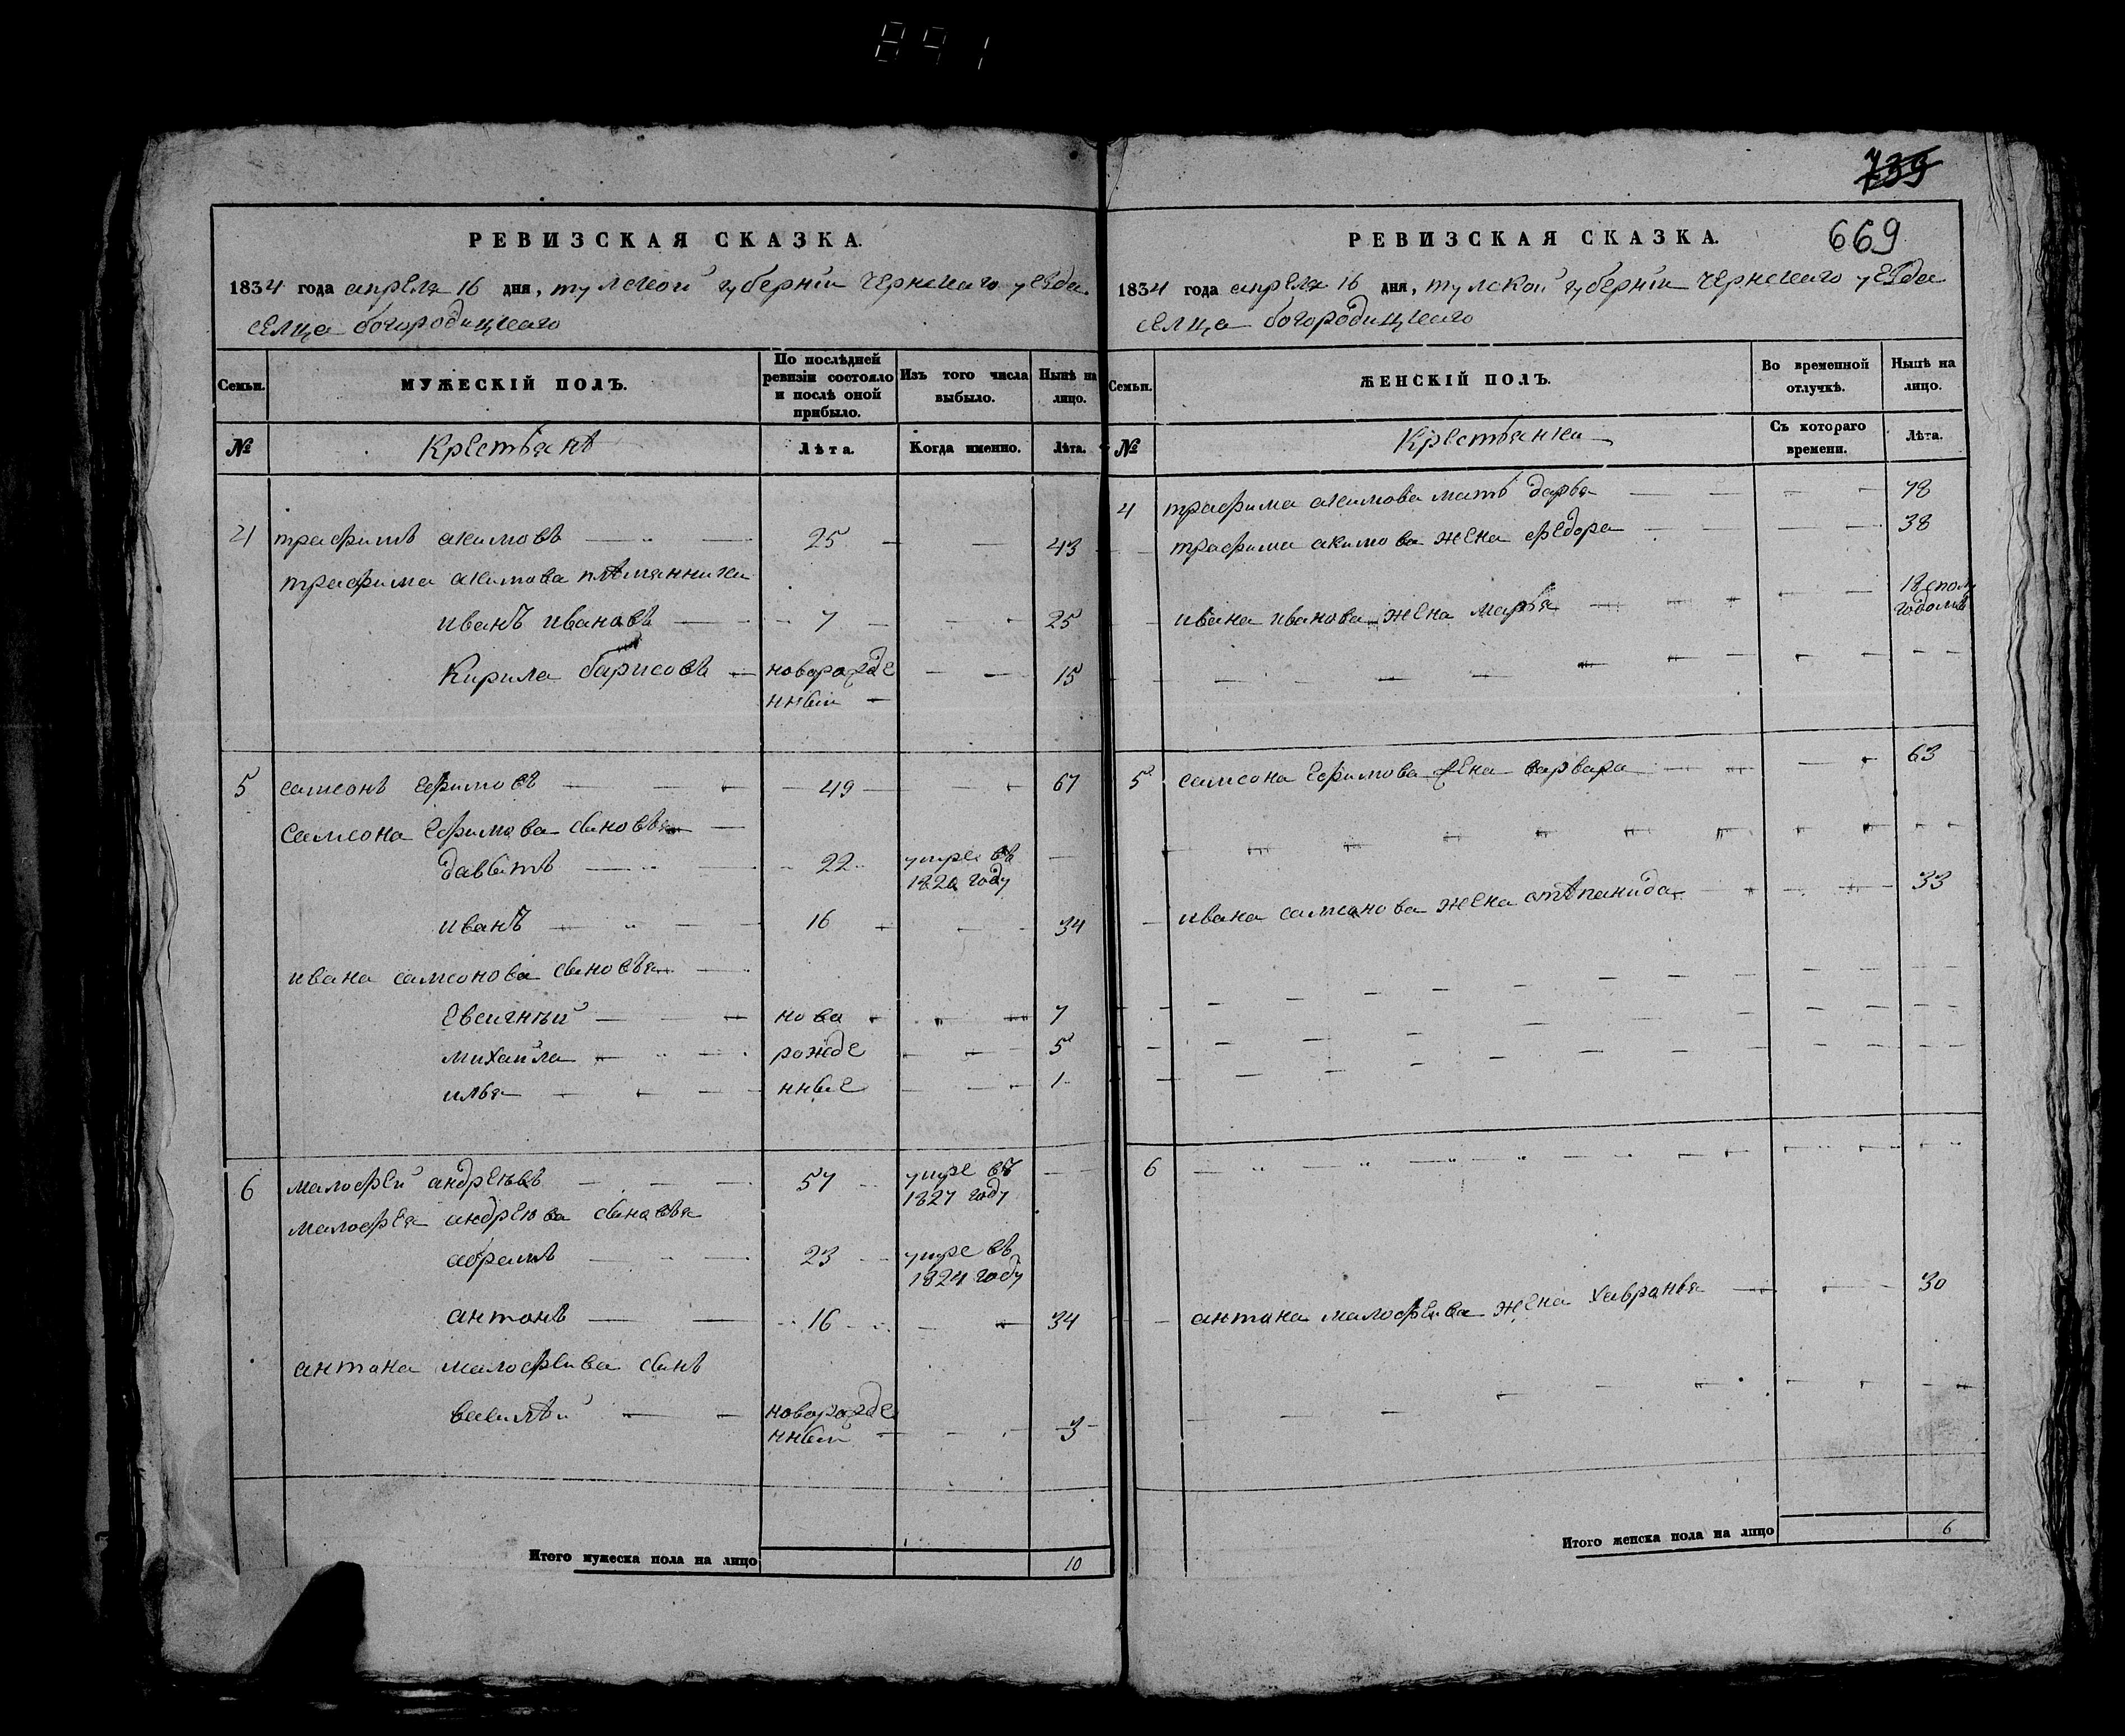 891
739
РЕВИЗСКАЯ СКАЗКА.
1834 года апреля 16 дня, тулской губернiи чернскаго уезда
селца богородицкаго
Семьи.
МУЖЕСКІЙ ПОЛЪ.
По послѣдней ревизіи состояло и послѣ оной прибыло.
Изъ того числа выбыло.
Нынѣ на лицо.
№
Крестьянѣ
Лѣта.
Когда именно.
Лѣта.
4 трафимъ акимовъ 25 43
трафима акимова племянники
иванъ ивановъ 7 25
Кирила барисовъ новаражде 15
нный
5 самсонъ Ефимовъ 49 67
Самсона Ефимова сыновья
давытъ 22 умре въ
1820 году
иванъ 16 34
ивана самсонова сыновья
Евсигнѣй нова 7
михайла рожде 5
илья нные 1
6 малофей андреевъ 57 умре въ
1827 году
малофея андреева сынавья
абрамъ 23 умре въ
1824 году
антонъ 16 34
антана малофеива сынъ
новаражде 3
нный
Итого мужеска пола на лицо 10
РЕВИЗСКАЯ СКАЗКА.
669
1834 года апреля 16 дня, тулской губернiи чернскаго уезда
селца богородицкаго
Семьи.
ЖЕНСКІЙ ПОЛЪ.
Во временной отлучкѣ.
Нынѣ на лицо.
№
Крестьянки
Съ котораго времени.
Лѣта.
4 трафима акимова мать дарья 78
трафима акимова жена федора 38
ивана иванова жена марья 18 с полу
годомъ
5 самсона Ефимова жена варвара 63
ивана самсонова жена стѣпанида 33
6
антана малофеива жена хавранья 30
Итого женска пола на лицо 6